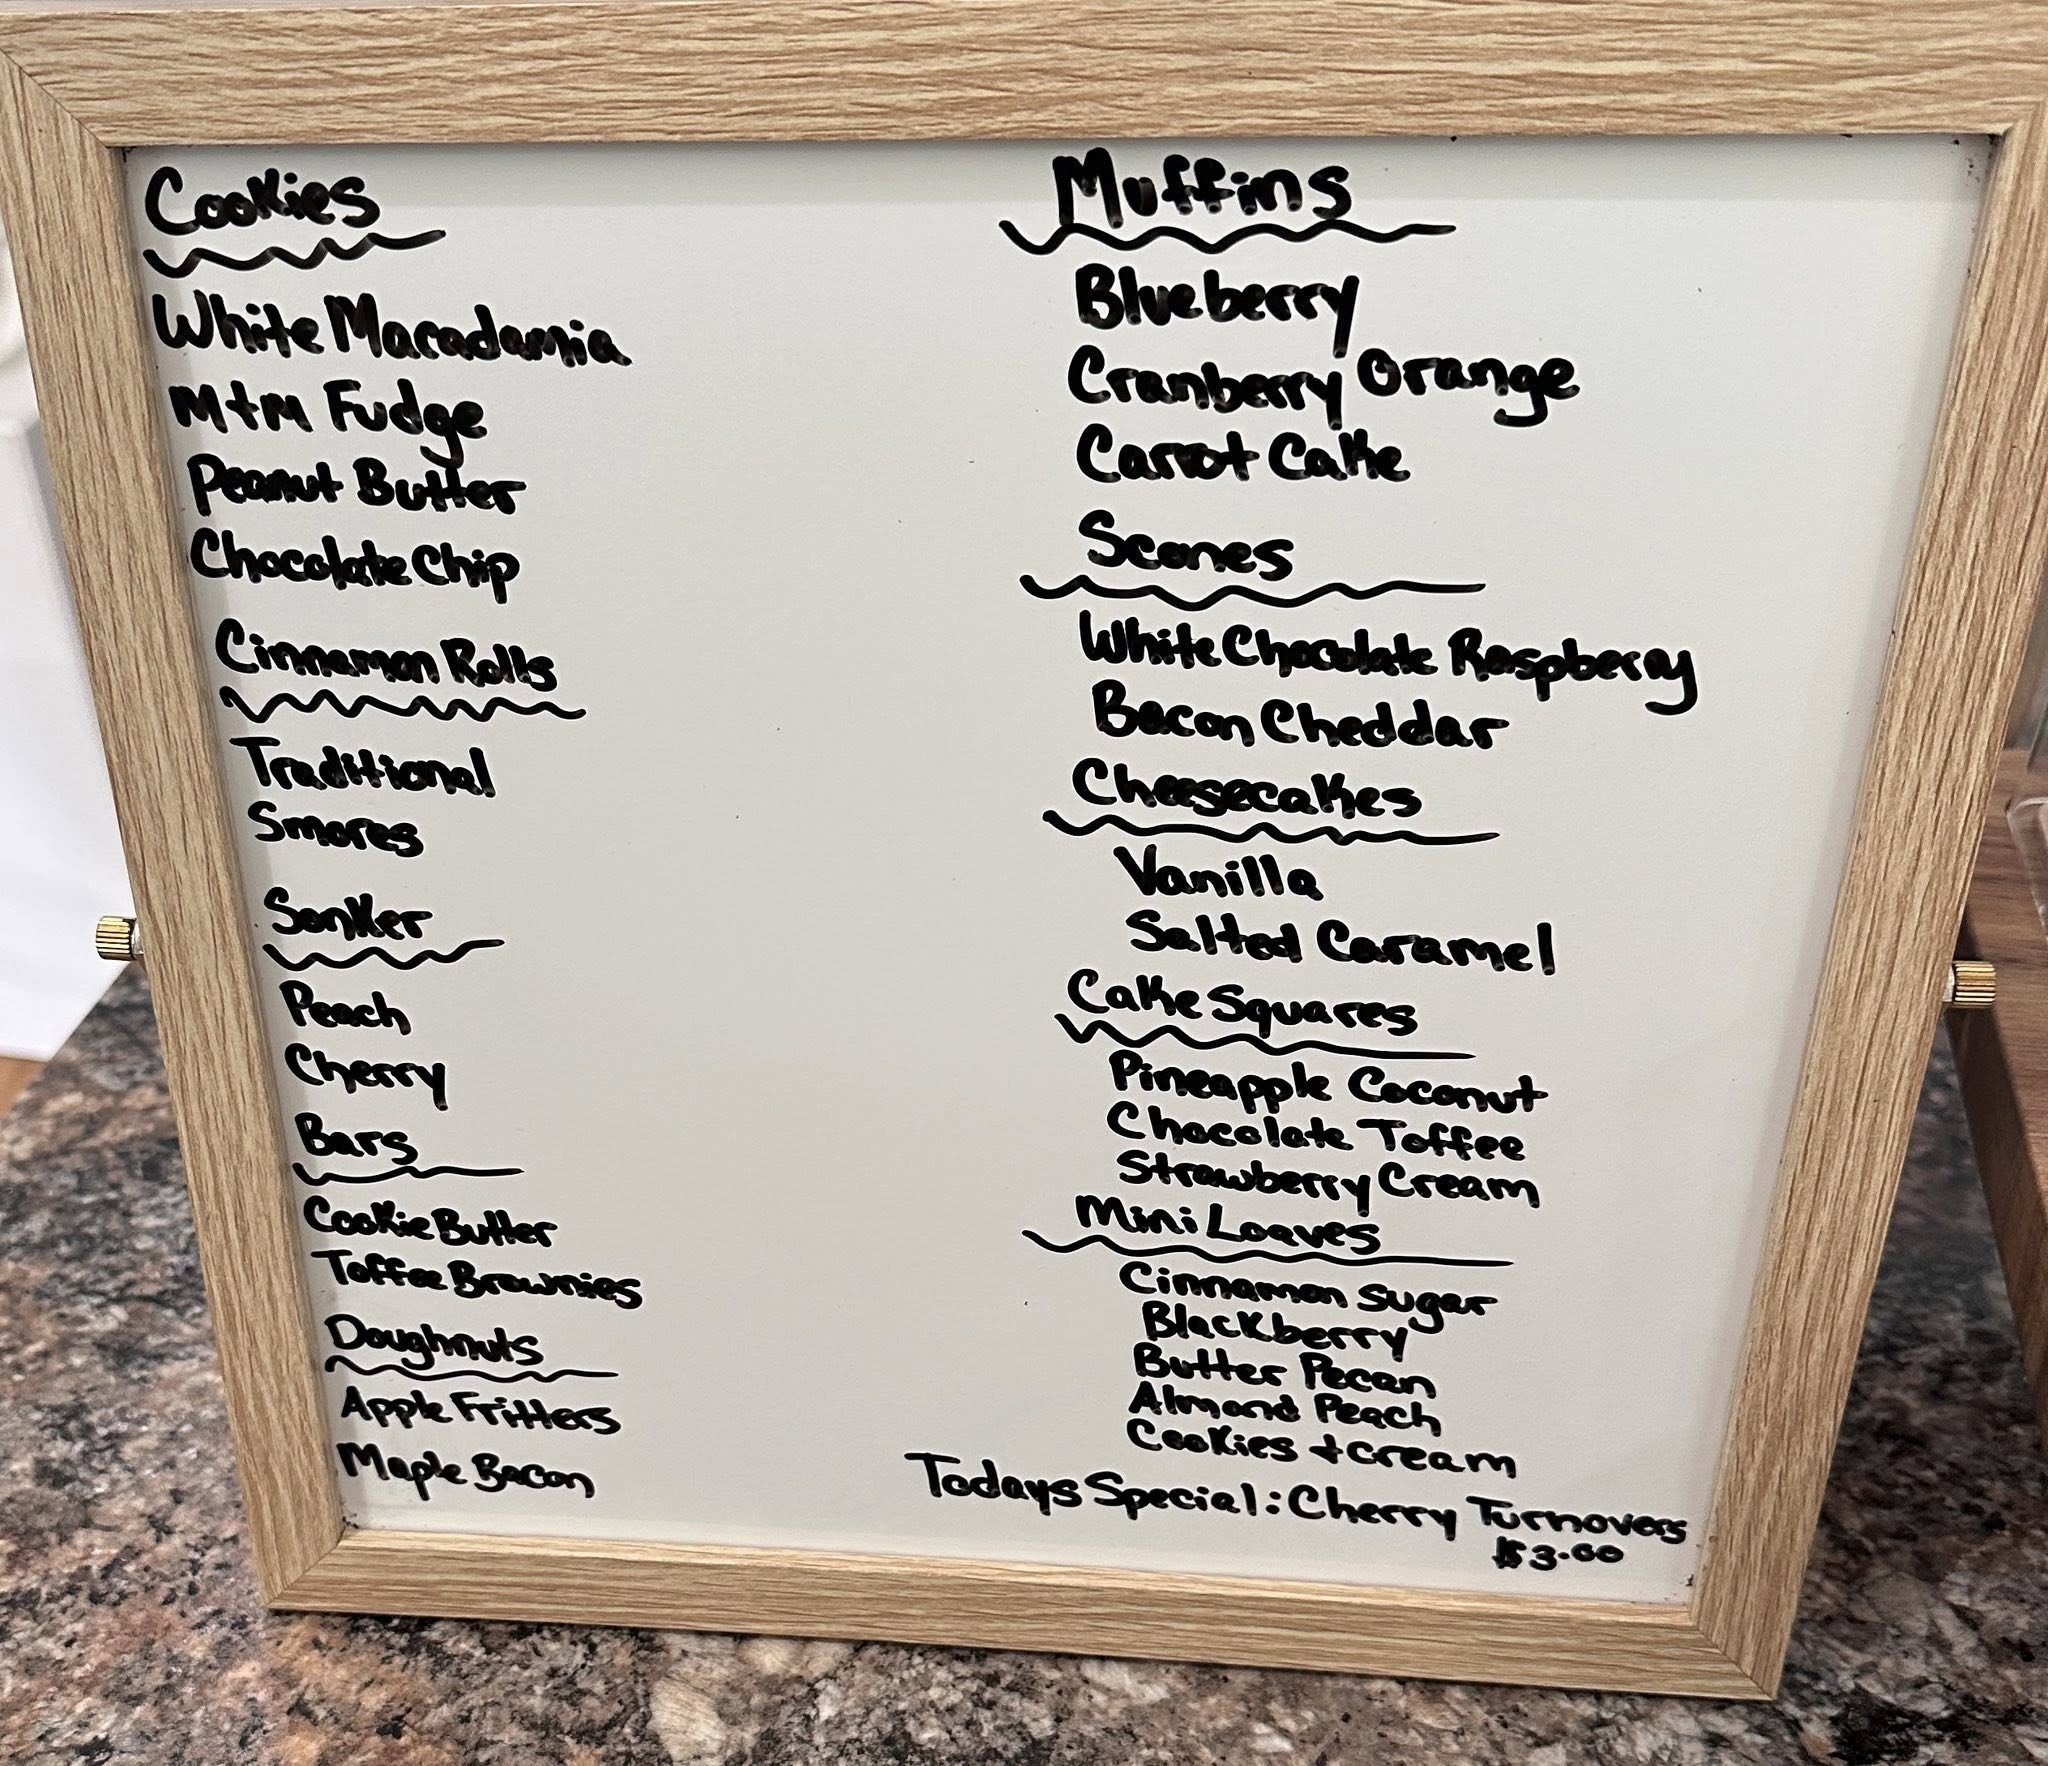 Cookies
White Macadamia
M+M Fudge
Peanut Butter
Chocolate Chip
Cinnamon Rolls
Traditional
Smores
Sonker
Peach
Cherry
Bars
Cookie Butter
Toffee Brownies
Doughnuts
Apple Fritters
Maple Bacon
Muffins
Blueberry
Cranberry Orange
Carrot Cake
Scones
White Chocolate Raspberry
Bacon Cheddar
Cheesecakes
Vanilla
Salted Caramel
Cake Squares
Pineapple Coconut
Chocolate Toffee
Strawberry Cream
Mini Loaves
Cinnamon Sugar
Blackberry
Butter Pecan
Almond Peach
Cookies + cream
Todays Special: Cherry Turnovers
$3.00